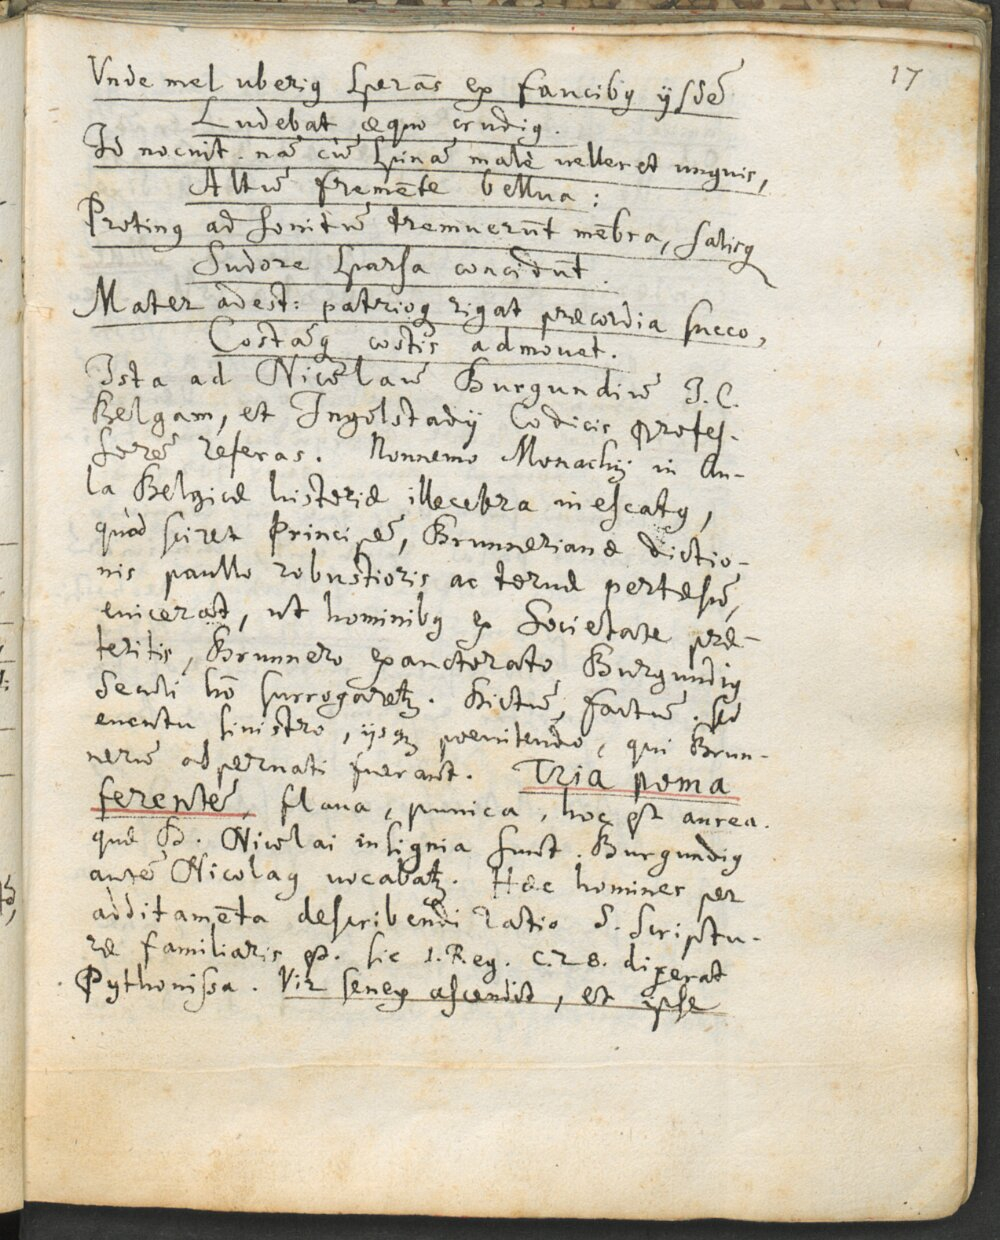 17
Vnde mel uberiꝰ sperās ex faucibꝰ ijsdē
Ludebat æquo crudiꝰ.
Id nocuit. nā cū spinā male uelleret unguis,
Altū fremēte bellua:
Protinꝰ ad sonitū tremuerūt mēbra, salisqꝫ
Sudore sparsa concidūt.
Mater adest: patrioqꝫ rigat præcordia succo,
Costāqꝫ costis admouet.
Ista ad Nicolaū Burgundiū I.C.
Belgam, et Ingolstadij Codicis profes-
sorē referas. Nonnemo Monachij in Au-
la Belgicæ historiæ illecebra inescatꝰ,
quòd sciret Principē, Brunnerianæ dictio-
nis paullo robustioris ac teruæ pertæsū,
euicerat, ut hominibꝰ ex Societate præ-
teritis, Brunnero exauctorato, Burgundiꝰ
seculi hō surrogaretꝛ. Dictū, factū. sed
euentu sinistro, ijsqꝫ poenitendo, qui Brun-
nerū adspernati fuerant. Tria poma
ferentē, flaua, punica, hoc est aurea.
quæ D. Nicolai insignia sunt. Burgundiꝰ
autē Nicolaꝰ uocabatꝛ. Hæc homines per
additamēta describendi ratio S. Scriptu-
ræ familiaris est. sic 1. Reg. c. 28. dixerat
Pythonissa. Vir senex ascendit, et ipse